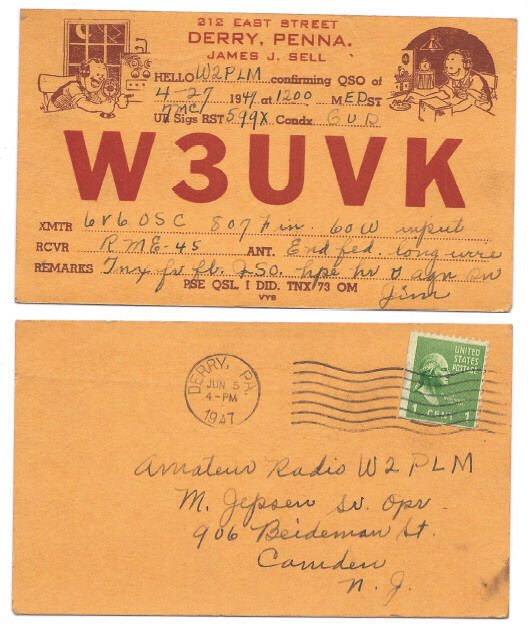 212 EAST STREET
DERRY, PENNA.
JAMES J. SELL
HELLO W2PLM confirming QSO of
4-27 1947 at 1200 M EDST
7MC
UR Sigs RST 599X Condx. GUD
W3UVK
XMTR 6V6 OSC 807 Fin. 60W input
RCVR RME-45 ANT. End fed. long wire
REMARKS Tnx fr fb. QSO. hpe hr u agn sn
PSE QSL I DID. TNX 73 OM
VYB
Jim
DERRY, PA.
JUN 5
4-PM
1947
UNITED
STATES
POSTAGE
1 CENT 1
Amateur Radio W2PLM
M. Jepsen Sr. Opr.
906 Beideman St.
Camden
N. J.